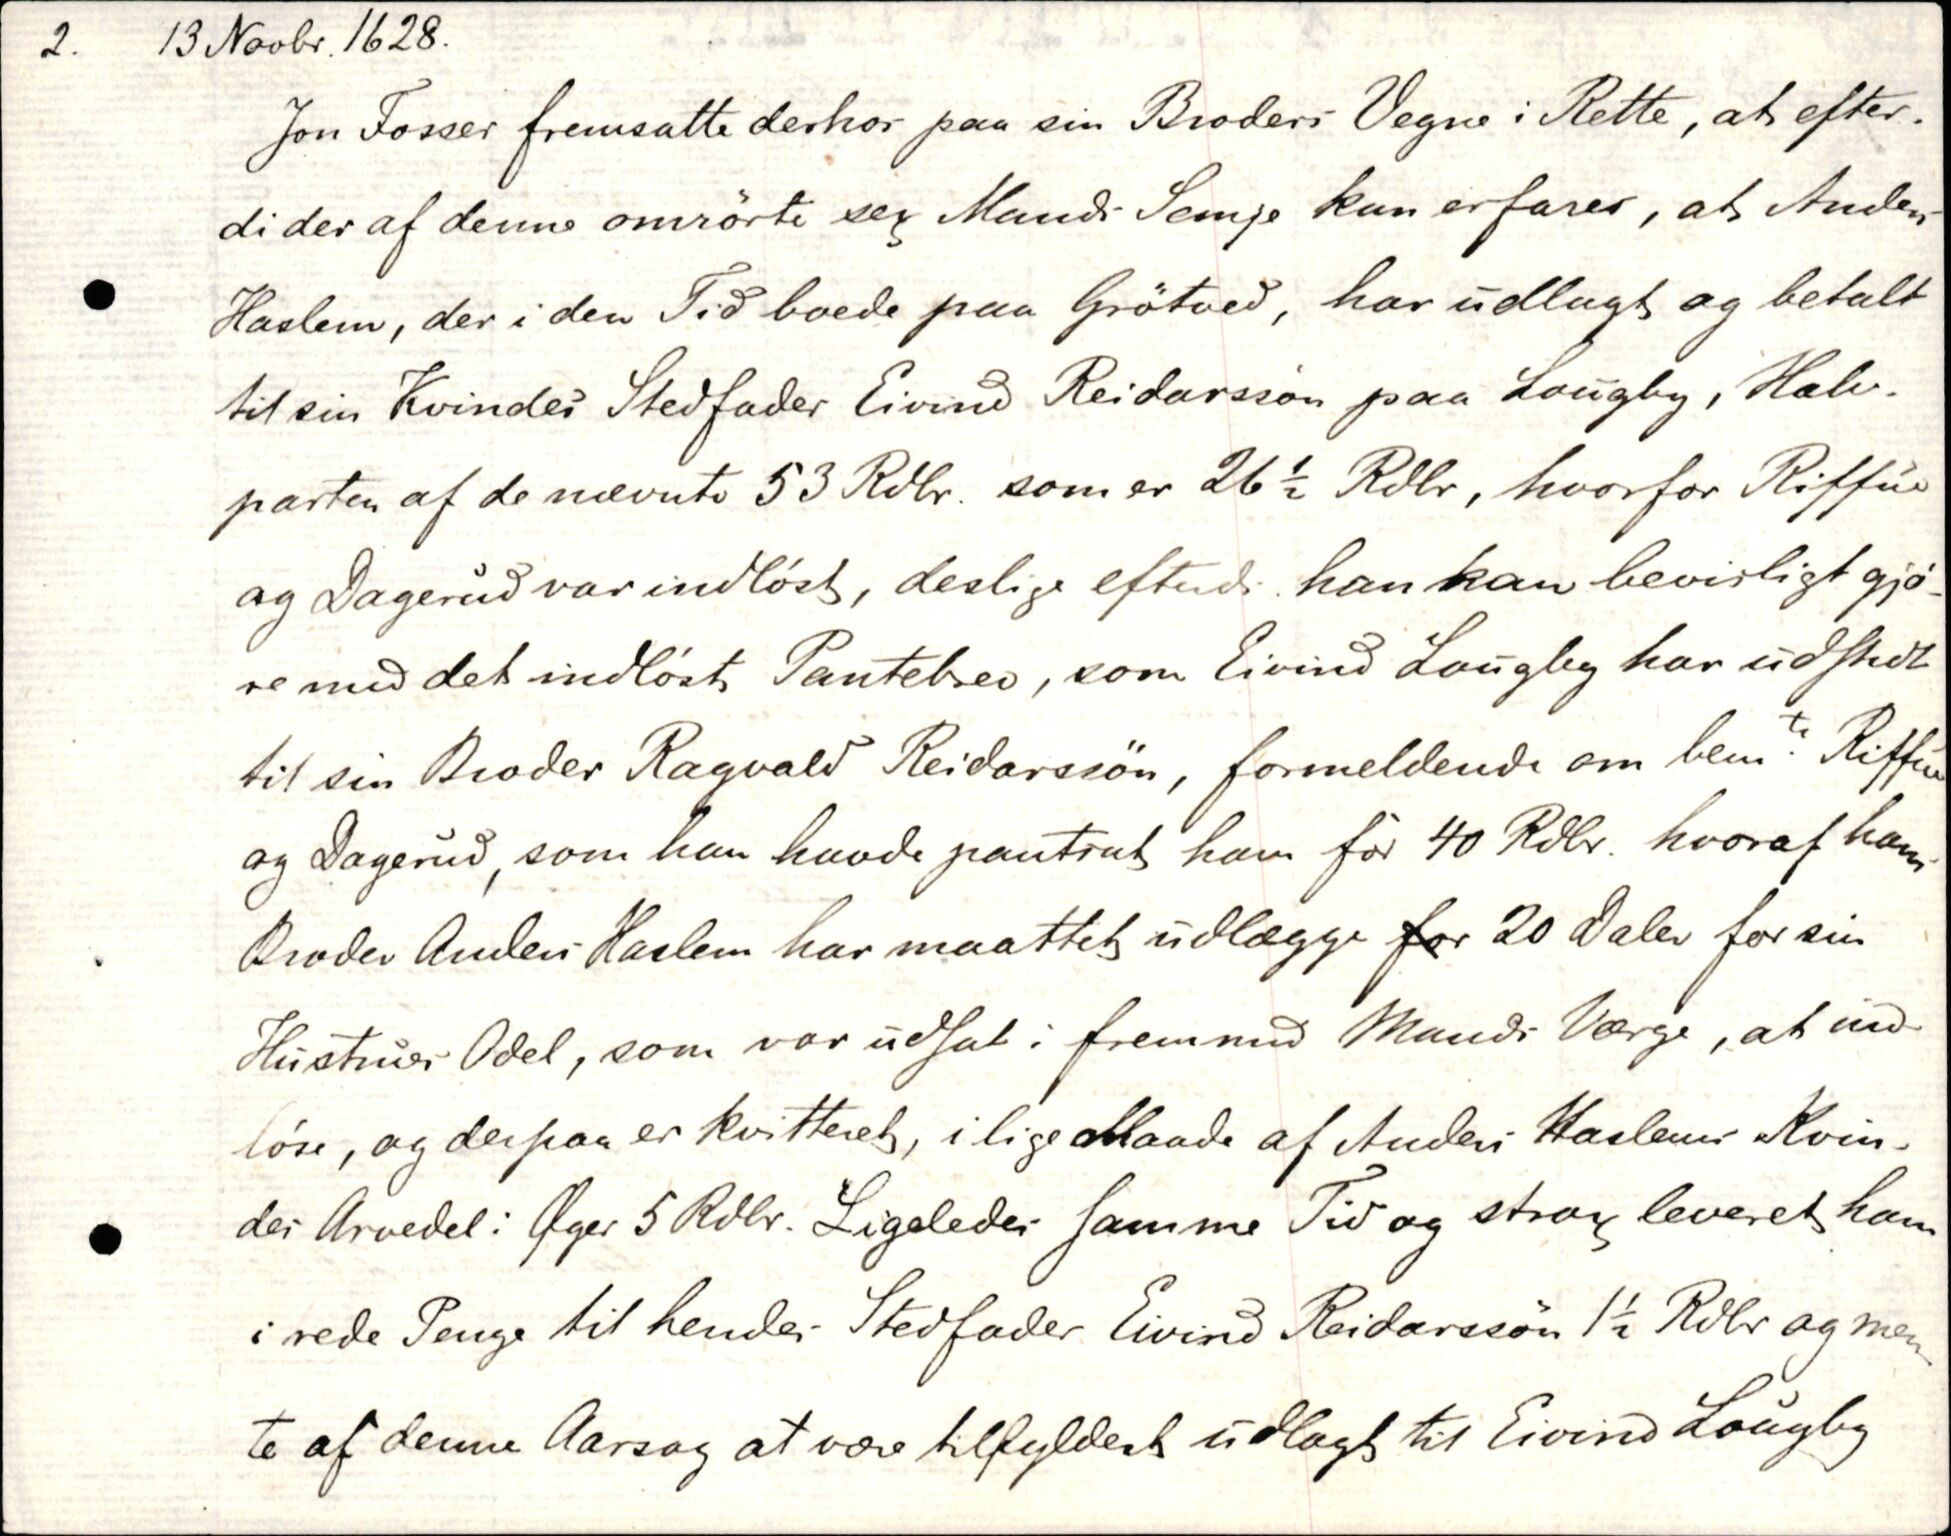 2. 13 Novbr. 1628.
Jon Fosser fremsatte derhos paa sin Broders Vegne i Rette, at efter-
di der af denne omrörte sex Mands Semje kan erfares, at Anders
Haslem, der i den Tid boede paa Grötved, har udlagt og betalt
til sin Kvindes Stedfader Eivind Reidarssön paa Lougby, Halv-
parten af de nævnte 53 Rdlr. som er 26½ Rdlr, hvorfor Riffue
og Dagerud var indlöst, deslige efterdi han kan bevisligt gjö-
re med det indlöste Pantebrev, som Eivind Lougby har udstedt
til sin Broder Ragvald Reidarssön, formeldende om bemte Riffue
og Dagerud, som han havde pantsat ham for 40 Rdlr. hvoraf hans
Broder Anders Haslem har maattet udlægge for 20 Daler for sin
Hustrues Odel, som var udsat i fremmed Mands Værge, at ind-
löse, og derpaa er kvitteret, i lige Maade af Anders Haslems Kvin-
des Arvedel i Øger 5 Rdlr. Ligeledes samme Tid og strax leveret ham
i rede Penge til hendes Stedfader Eivind Reidarssön 1½ Rdlr og men
te af denne Aarsag at være tilfyldest udlagt til Eivind Lougby